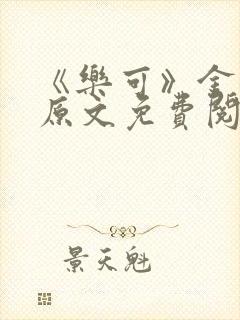 《樂可》全
原文免費閱
景天魁